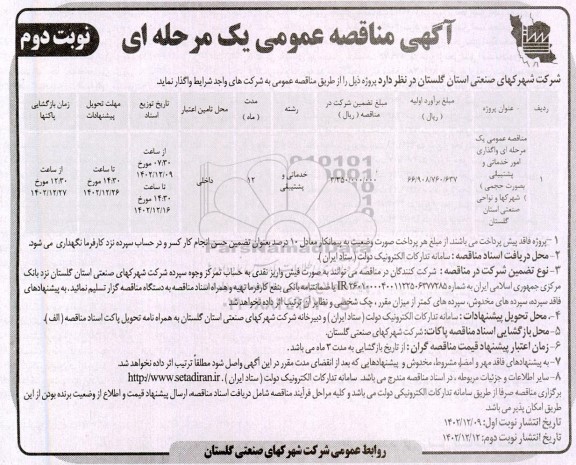 آگهی مناقصه عمومی یک مرحله ای
نوبت دوم
شرکت شهرکهای صنعتی استان گلستان در نظر دارد پروژه ذیل را از طریق مناقصه عمومی به شرکت های واجد شرایط واگذار نماید.
ردیف
عنوان پروژه
مبلغ برآورد اولیه ( ریال )
مبلغ تضمین شرکت در مناقصه ( ریال )
رشته
مدت ( ماه )
محل تامین اعتبار
تاریخ توزیع اسناد
مهلت تحویل پیشنهادات
زمان بازگشایی پاکتها
۱
مناقصه عمومی یک مرحله ای واگذاری امور خدماتی و پشتیبانی بصورت حجمی ) شهرکها و نواحی صنعتی استان گلستان
۶۶/۹۰۸/۷۶۰/۶۳۷
۳/۳۵۰/۰۰۰/۰۰۰
خدماتی و پشتیبانی
۱۲
داخلی
از ساعت ۰۷:۳۰ مورخ ۱۴۰۲/۱۲/۰۹ تا ساعت ۱۴:۳۰ مورخ ۱۴۰۲/۱۲/۱۶
تا ساعت ۱۴:۳۰ مورخ ۱۴۰۲/۱۲/۲۶
از ساعت ۱۲:۳۰ مورخ ۱۴۰۲/۱۲/۲۷
۱-پروژه فاقد پیش پرداخت می باشند. از مبلغ هر پرداخت صورت وضعیت به پیمانکار معادل ۱۰ درصد بعنوان تضمین حسن انجام کار کسر و در حساب سپرده نزد کارفرما نگهداری می شود.
۲- محل دریافت اسناد مناقصه : سامانه تدارکات الکترونیک دولت (ستاد ایران ).
۳- نوع تضمین شرکت در مناقصه : شرکت کنندگان در مناقصه می توانند به صورت فیش واریز نقدی به حساب تمرکز وجوه سپرده شرکت شهرکهای صنعتی استان گلستان نزد بانک
مرکزی جمهوری اسلامی ایران به شماره IR۲۶۰۱۰۰۰۰۴۰۰۱۱۲۳۵۰۶۳۷۷۲۸۵ یا ضمانتنامه بانکی بنفع کارفرما تهیه و همراه اسناد مناقصه به دستگاه مناقصه گزار تسلیم نمائید. به پیشنهادهای
فاقد سپرده، سپرده های مخدوش، سپرده های کمتر از میزان مقرر ، چک شخصی و نظایر آن ترتیب اثر داده نخواهد شد.
۴- محل تحویل پیشنهادات : سامانه تدارکات الکترونیک دولت ( ستاد ایران ) و دبیرخانه شرکت شهرکهای صنعتی استان گلستان به همراه نامه تحویل پاکت اسناد مناقصه ( الف ).
۵- محل بازگشایی اسناد مناقصه پاکات: شرکت شهرکهای صنعتی گلستان.
۶- زمان اعتبار پیشنهاد قیمت مناقصه گران : از تاریخ بازگشایی به مدت ۳ ماه می باشد .
۷- به پیشنهادهای فاقد مهر و امضا، مشروط، مخدوش و پیشنهادهایی که بعد از انقضای مدت مقرر در این آگهی واصل شود مطلقاً ترتیب اثر داده نخواهد شد.
۸- سایر اطلاعات و جزئیات مربوطه ، در اسناد مناقصه مندرج می باشد. سامانه تدارکات الکترونیک دولت ( ستاد ایران ) . http//www.setadiran.ir
برگزاری مناقصه صرفا از طریق سامانه تدارکات الکترونیکی دولت می باشد و کلیه مراحل فرآیند مناقصه شامل دریافت اسناد مناقصه، ارسال پیشنهاد قیمت و اطلاع از وضعیت برنده بودن از این
طریق امکان پذیر می باشد.
تاریخ انتشار نوبت اول: ۱۴۰۲/۱۲/۰۹
تاریخ انتشار نوبت دوم: ۱۴۰۲/۱۲/۱۲
روابط عمومی شرکت شهرکهای صنعتی گلستان